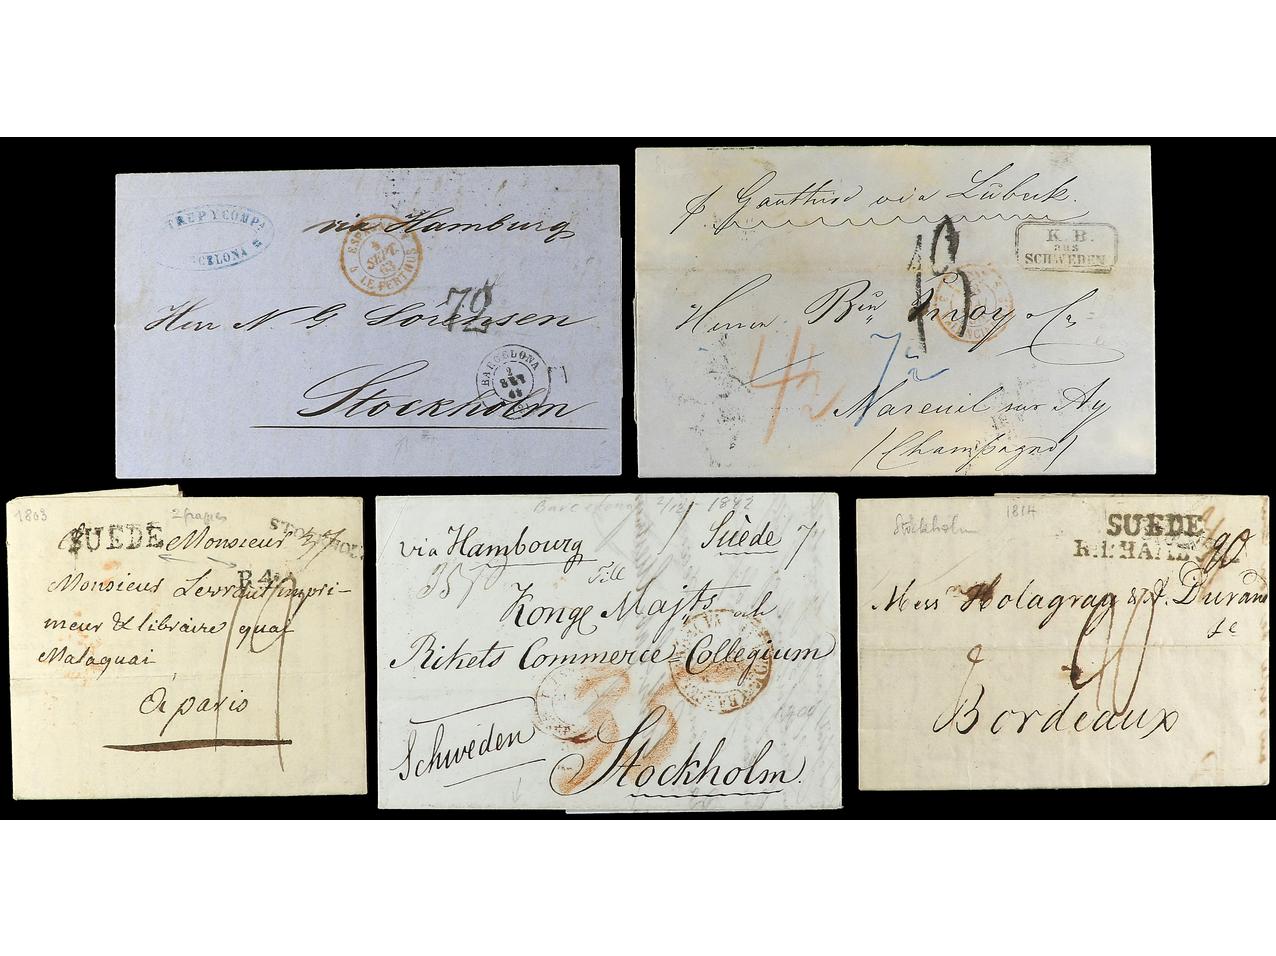 TREPYCOMPA
BARCELONA
via Hamburg
4 SEPT. 63
LE PERTHUS
72
Herr N. G. Sörensen
BARCELONA
2
SET
63
Stockholm
p. Gauthiod via Lübeck.
K. B.
aus
SCHWEDEN
Herren Bin Invoy & Co
4½
7½
Mareuil sur Ay
(Champagne)
1803
2 frapes
SUEDE
STOCKHOLM
Monsieur
R.4.
Monsieur Levrault impri-
meur & libraire quai
Malaquai
a paris
Barcelona 2/12 1842
via Hambourg
Suède
Till
Konge Majts och
Rikets Commerce-Collegium
Schweden
35
Stockholm.
Stockholm
1814
SUEDE
Mess Holagray & J. Durand
Bordeaux